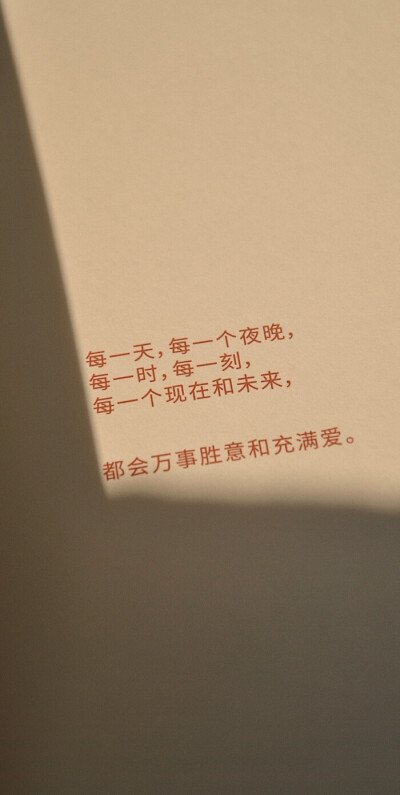 每一天，每一个夜晚，
每一时，每一刻，
每一个现在和未来，
都会万事胜意和充满爱。